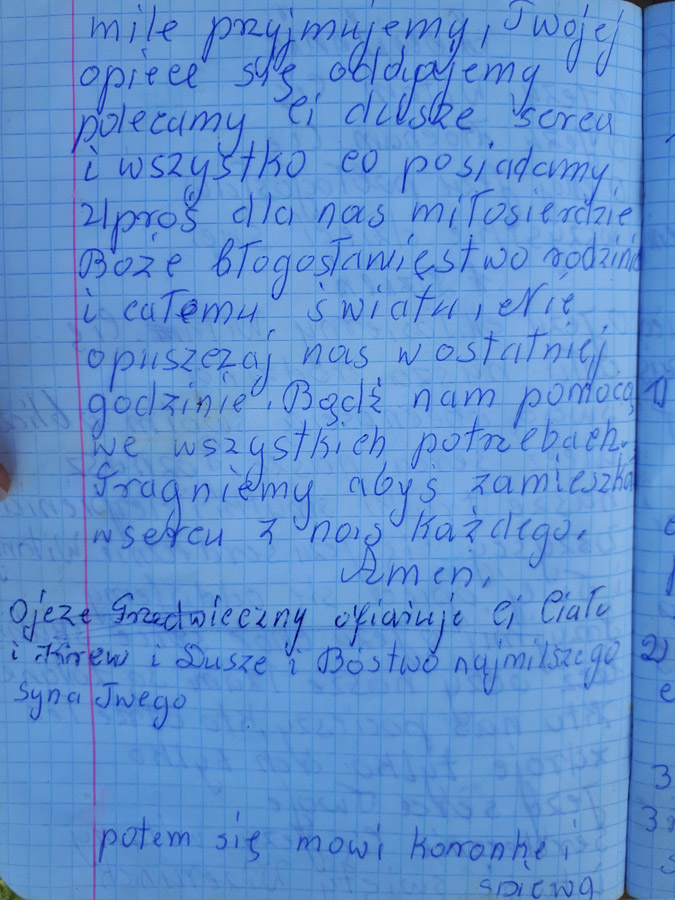 mile przyjmujemy, Twojej
opiece się oddajemy
polecamy Ci dusze serca
i wszystko co posiadamy
Uproś dla nas miłosierdzie
Boże błogosławięstwo rodzinie
i całemu światu, Nie
opuszczaj nas w ostatniej
godzinie. Bądź nam pomocą
we wszystkich potrzebach.
Pragniemy abyś zamieszkał
w sercu z nas każdego.
Amen.
Ojcze Przedwieczny ofiaruje Ci Ciało
i Krew i Dusze i Bóstwo najmilszego
Syna Twego
potem się mowi koronke i
śpiewa
1)
2)
e
3
3